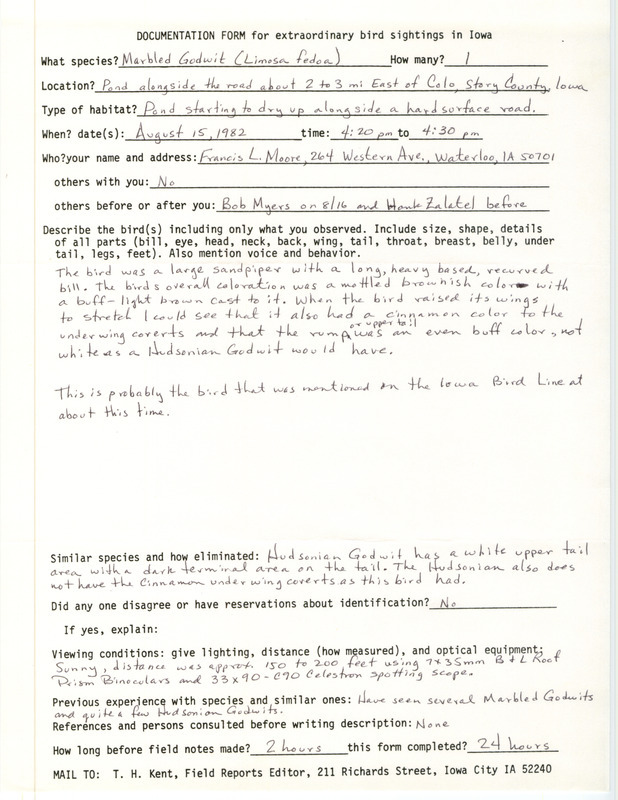 DOCUMENTATION FORM for extraordinary bird sightings in Iowa
What species? Marbled Godwit (Limosa fedoa) How many? 1
Location? Pond alongside the road about 2 to 3 mi East of Colo, Story County, Iowa
Type of habitat? Pond starting to dry up alongside a hard surface road.
When? date(s): August 15, 1982 time: 4:20 pm to 4:30 pm
Who? your name and address: Francis L. Moore, 264 Western Ave., Waterloo, IA 50701
others with you: No
others before or after you: Bob Myers on 8/16 and Hank Zaletel before
Describe the bird(s) including only what you observed. Include size, shape, details
of all parts (bill, eye, head, neck, back, wing, tail, throat, breast, belly, under
tail, legs, feet). Also mention voice and behavior.
The bird was a large sandpiper with a long, heavy based, recurved
bill. The bird's overall coloration was a mottled brownish color with
a buff-light brown cast to it. When the bird raised its wings
to stretch I could see that it also had a cinnamon color to the
underwing coverts and that the rump or upper tail was an even buff color, not
white as a Hudsonian Godwit would have.
This is probably the bird that was mentioned on the Iowa Bird Line at
about this time.
Similar species and how eliminated: Hudsonian Godwit has a white upper tail
area with a dark terminal area on the tail. The Hudsonian also does
not have the Cinnamon under wing coverts as this bird had.
Did any one disagree or have reservations about identification? No
If yes, explain:
Viewing conditions: give lighting, distance (how measured), and optical equipment:
Sunny, distance was approx. 150 to 200 feet using 7x35mm B & L Roof
Prism Binoculars and 33x90-C90 Celestron spotting scope.
Previous experience with species and similar ones: Have seen several Marbled Godwits
and quite a few Hudsonian Godwits.
References and persons consulted before writing description: None
How long before field notes made? 2 hours this form completed? 24 hours
MAIL TO: T. H. Kent, Field Reports Editor, 211 Richards Street, Iowa City IA 52240